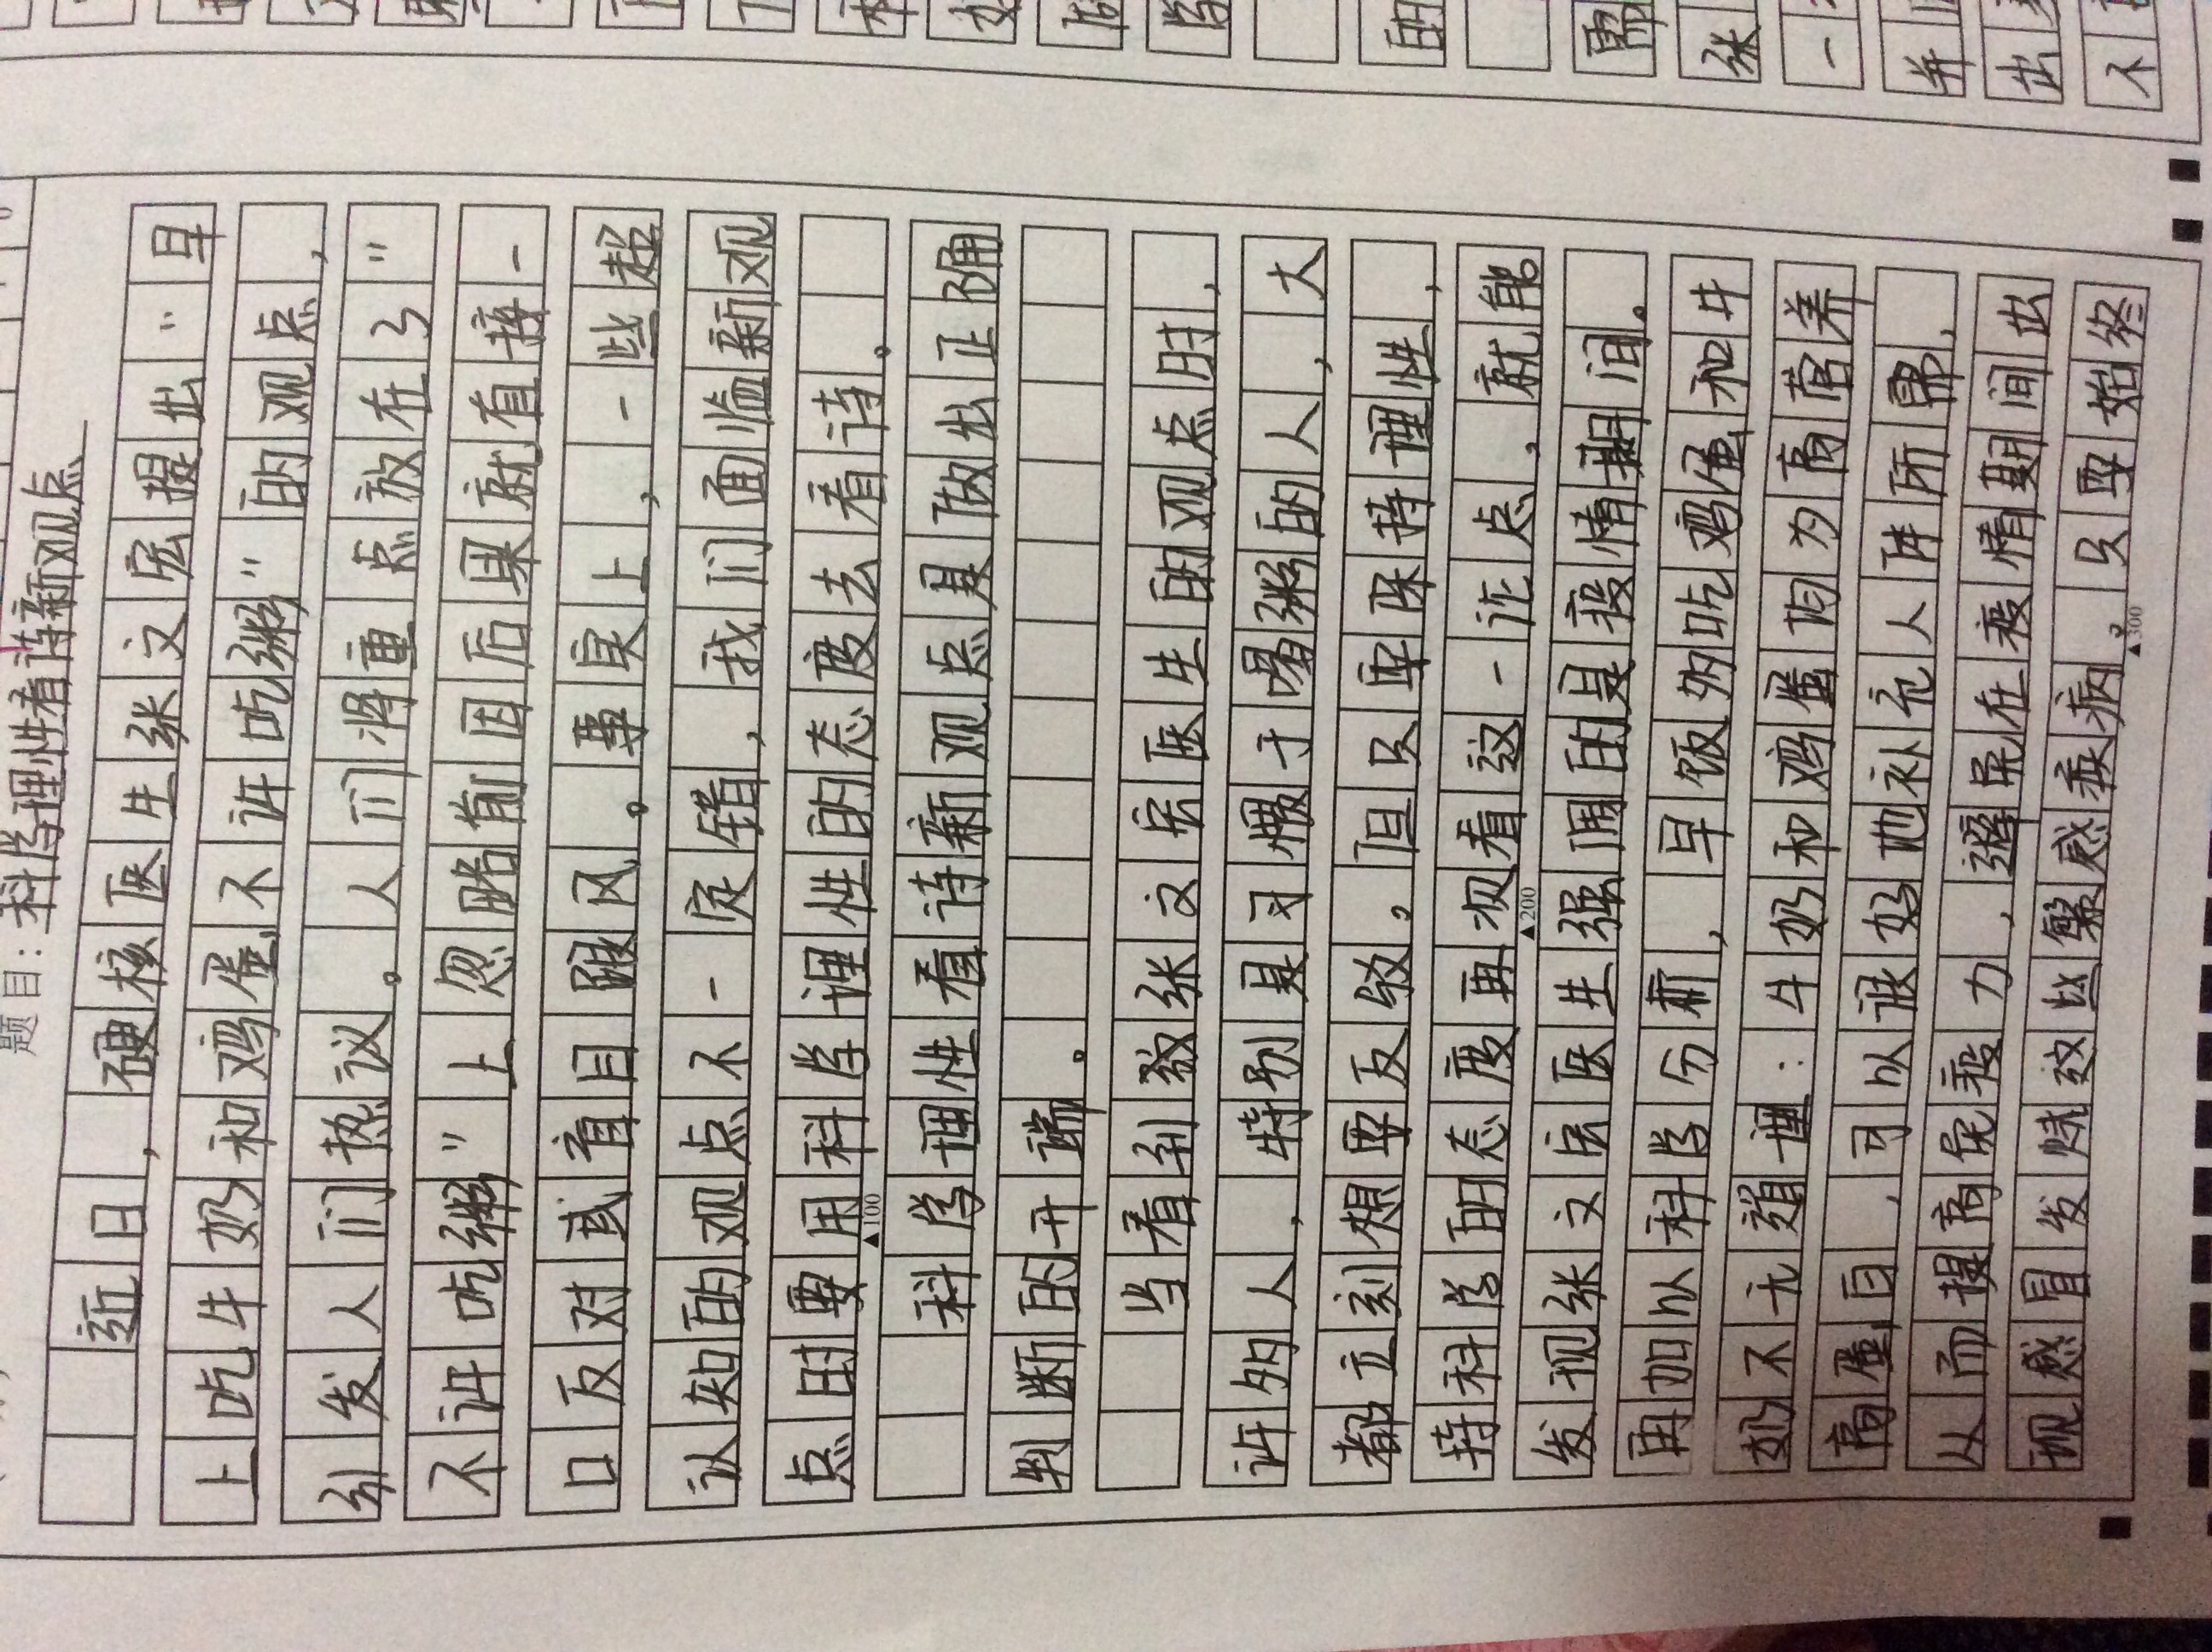 题目：科学理性看待新观点
近日，硬核医生张文宏提出“早
上吃牛奶和鸡蛋，不许吃粥”的观点，
引发人们热议。人们将重点放在了“
不许吃粥”上忽略前因后果就直接一
口反对或盲目跟风。事实上，一些超
认知的观点不一定错，我们面临新观
点时要用科学理性的态度去看待。
▲100
科学理性看待新观点是做出正确
判断的开端。
当看到张文宏医生的观点时，
许多人，特别是习惯于喝粥的人，大
都立刻想要反驳。但只要保持理性，
持科学的态度再观看这一论点，就能
▲200
发现张文宏医生强调的是疫情期间。
再加以科学分析，早饭多吃鸡蛋和牛
奶不无道理：牛奶和鸡蛋均为高营养
高蛋白，可以很好地补充人体所需，
从而提高免疫力，避免在疫情期间出
现感冒发烧这些繁感疾病。只要始终
▲300
的
需
张
一
并
出
不